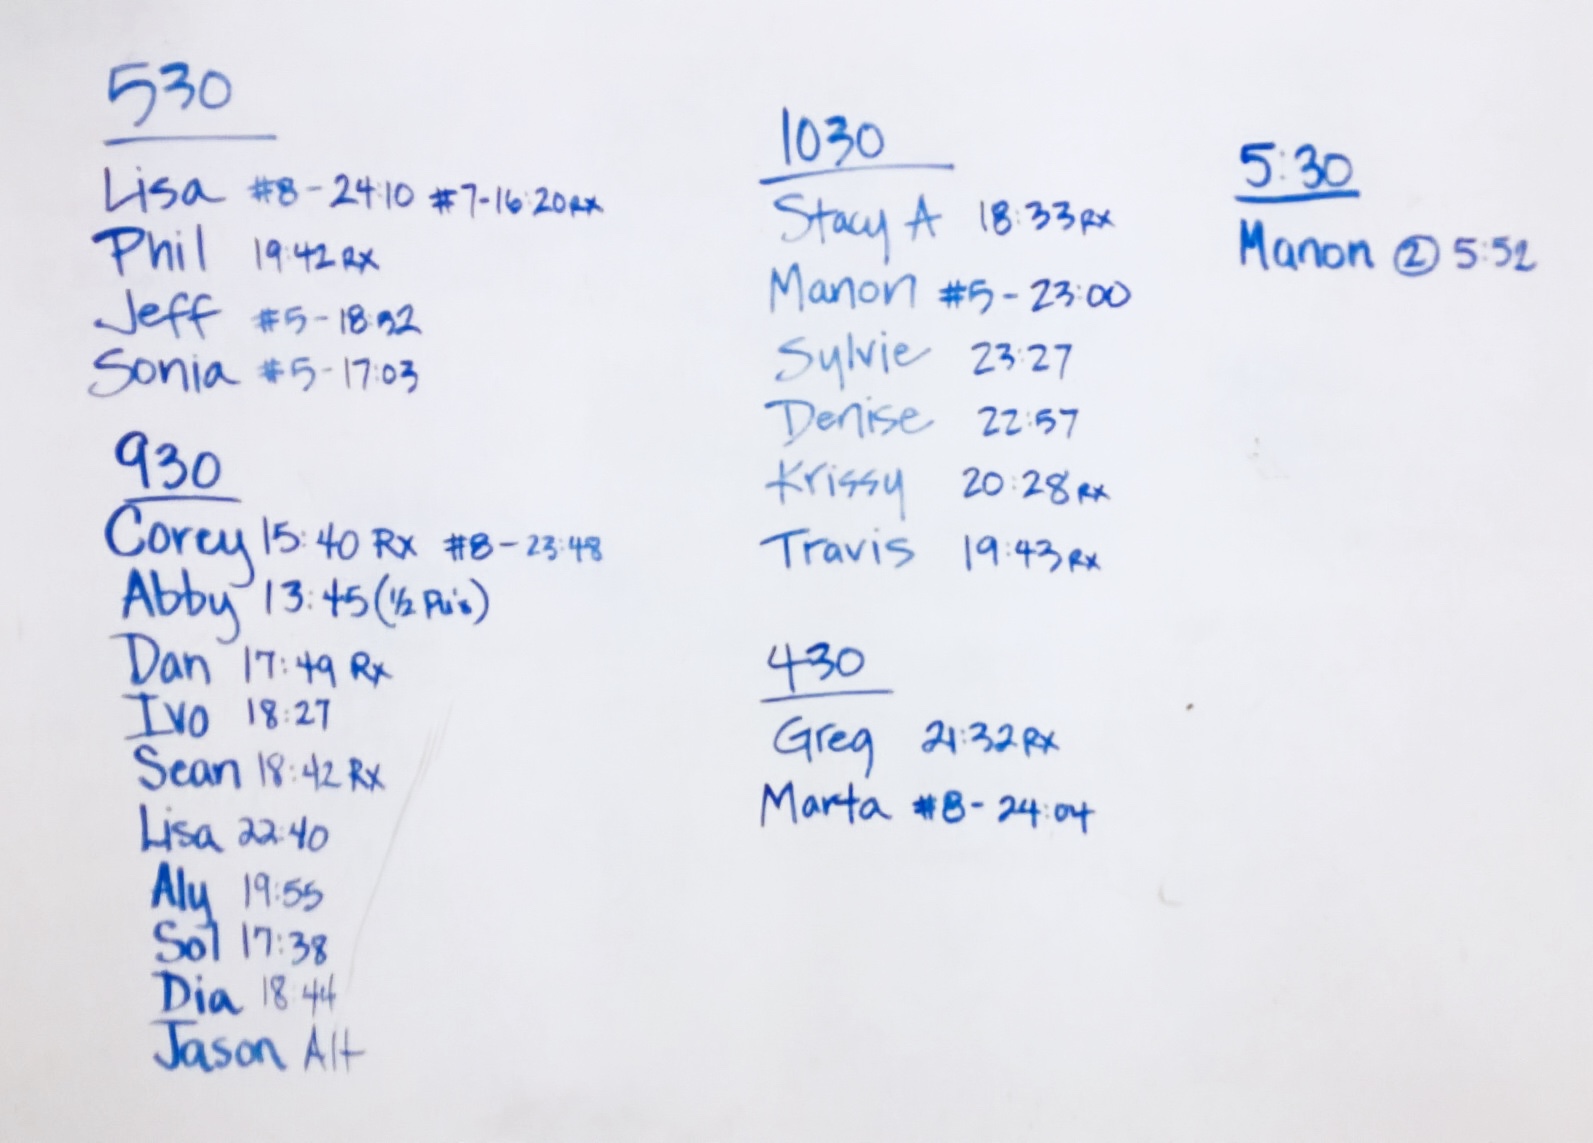 530
Lisa #8-24:10 #7-16:20 Rx
Phil 19:42 Rx
Jeff #5-18:52
Sonia #5-17:03
930
Corey 15:40 Rx #8-23:48
Abby 13:45 (1/2 Pu's)
Dan 17:49 Rx
Ivo 18:27
Sean 18:42 Rx
Lisa 22:40
Aly 19:55
Sol 17:38
Dia 18:44
Jason Alt
1030
Stacy A 18:33 Rx
Manon #5-23:00
Sylvie 23:27
Denise 22:57
Krissy 20:28 Rx
Travis 19:43 Rx
430
Greg 21:32 Rx
Marta #8-24:04
5:30
Manon ② 5:52